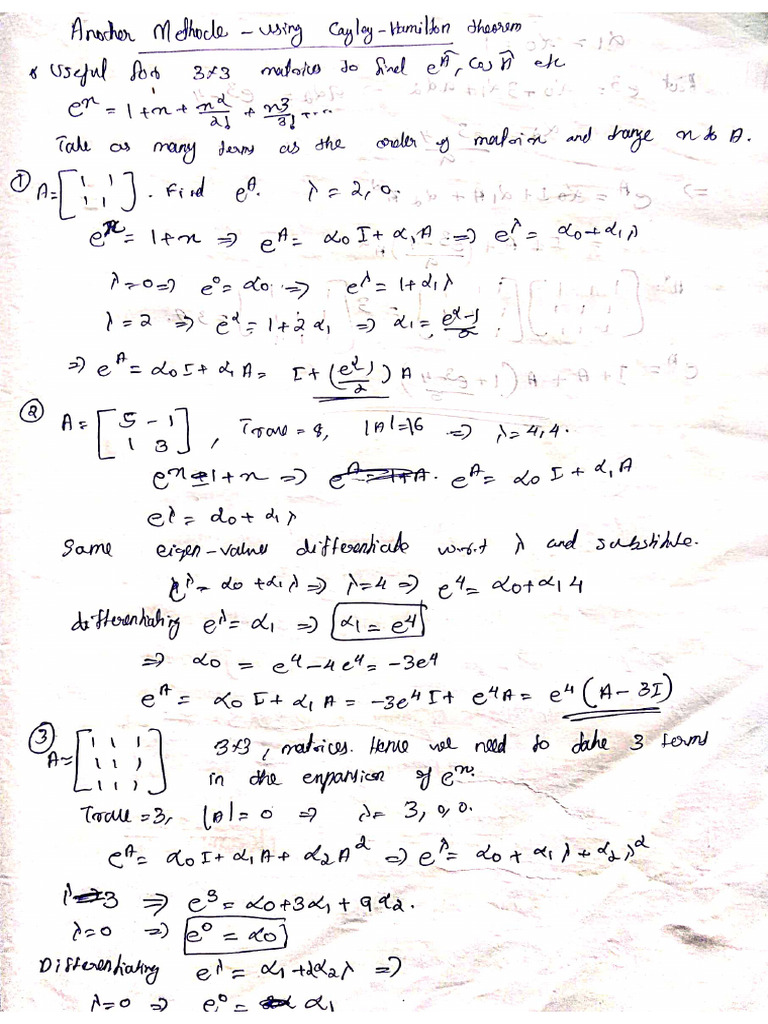 Another Methode - using Cayley-Hamilton theorem
* Useful for 3×3 matrices to find e^Â, Cos Â etc
e^x = 1+x+x²/2! + x3/3! + ....
Take as many terms as the order of matrix and change x to A.
① A = [1 1; 1 1] . Find e^A. λ = 2, 0.
e^x = 1+x ⇒ e^A = α0 I + α1 A ⇒ e^λ = α0+α1λ
λ=0 ⇒ e^0 = α0 ⇒ e^λ = 1+α1λ
λ=2 ⇒ e² = 1+2α1 ⇒ α1 = (e²-1)/2
⇒ e^A = α0 I + α1 A = I + (e²-1)/2 ) A
② A = [5 -1; 1 3] , Trace = 8, |A| = 16 ⇒ λ = 4,4.
e^x = 1+x ⇒ e^A = 1+A. e^A = α0 I + α1 A
e^λ = α0 + α1 λ
Same eigen-values differentiate w.r.t λ and substitute.
e^λ = α0 + α1 λ ⇒ λ=4 ⇒ e^4 = α0+α1 4
differentiating e^λ = α1 ⇒ α1 = e^4
⇒ α0 = e^4 - 4e^4 = -3e^4
e^A = α0 I + α1 A = -3e^4 I + e^4 A = e^4 (A - 3I)
③ A = [1 1 1; 1 1 1; 1 1 1] 3×3, matrices. Hence we need to take 3 terms
in the expansion of e^x.
Trace = 3, |A| = 0 ⇒ λ = 3, 0, 0.
e^A = α0 I + α1 A + α2 A² ⇒ e^λ = α0 + α1 λ + α2 λ²
λ=3 ⇒ e^3 = α0+3α1 + 9α2.
λ=0 ⇒ e^0 = α0
Differentiating e^λ = α1 + 2α2 λ ⇒
λ=0 ⇒ e^0 = α1